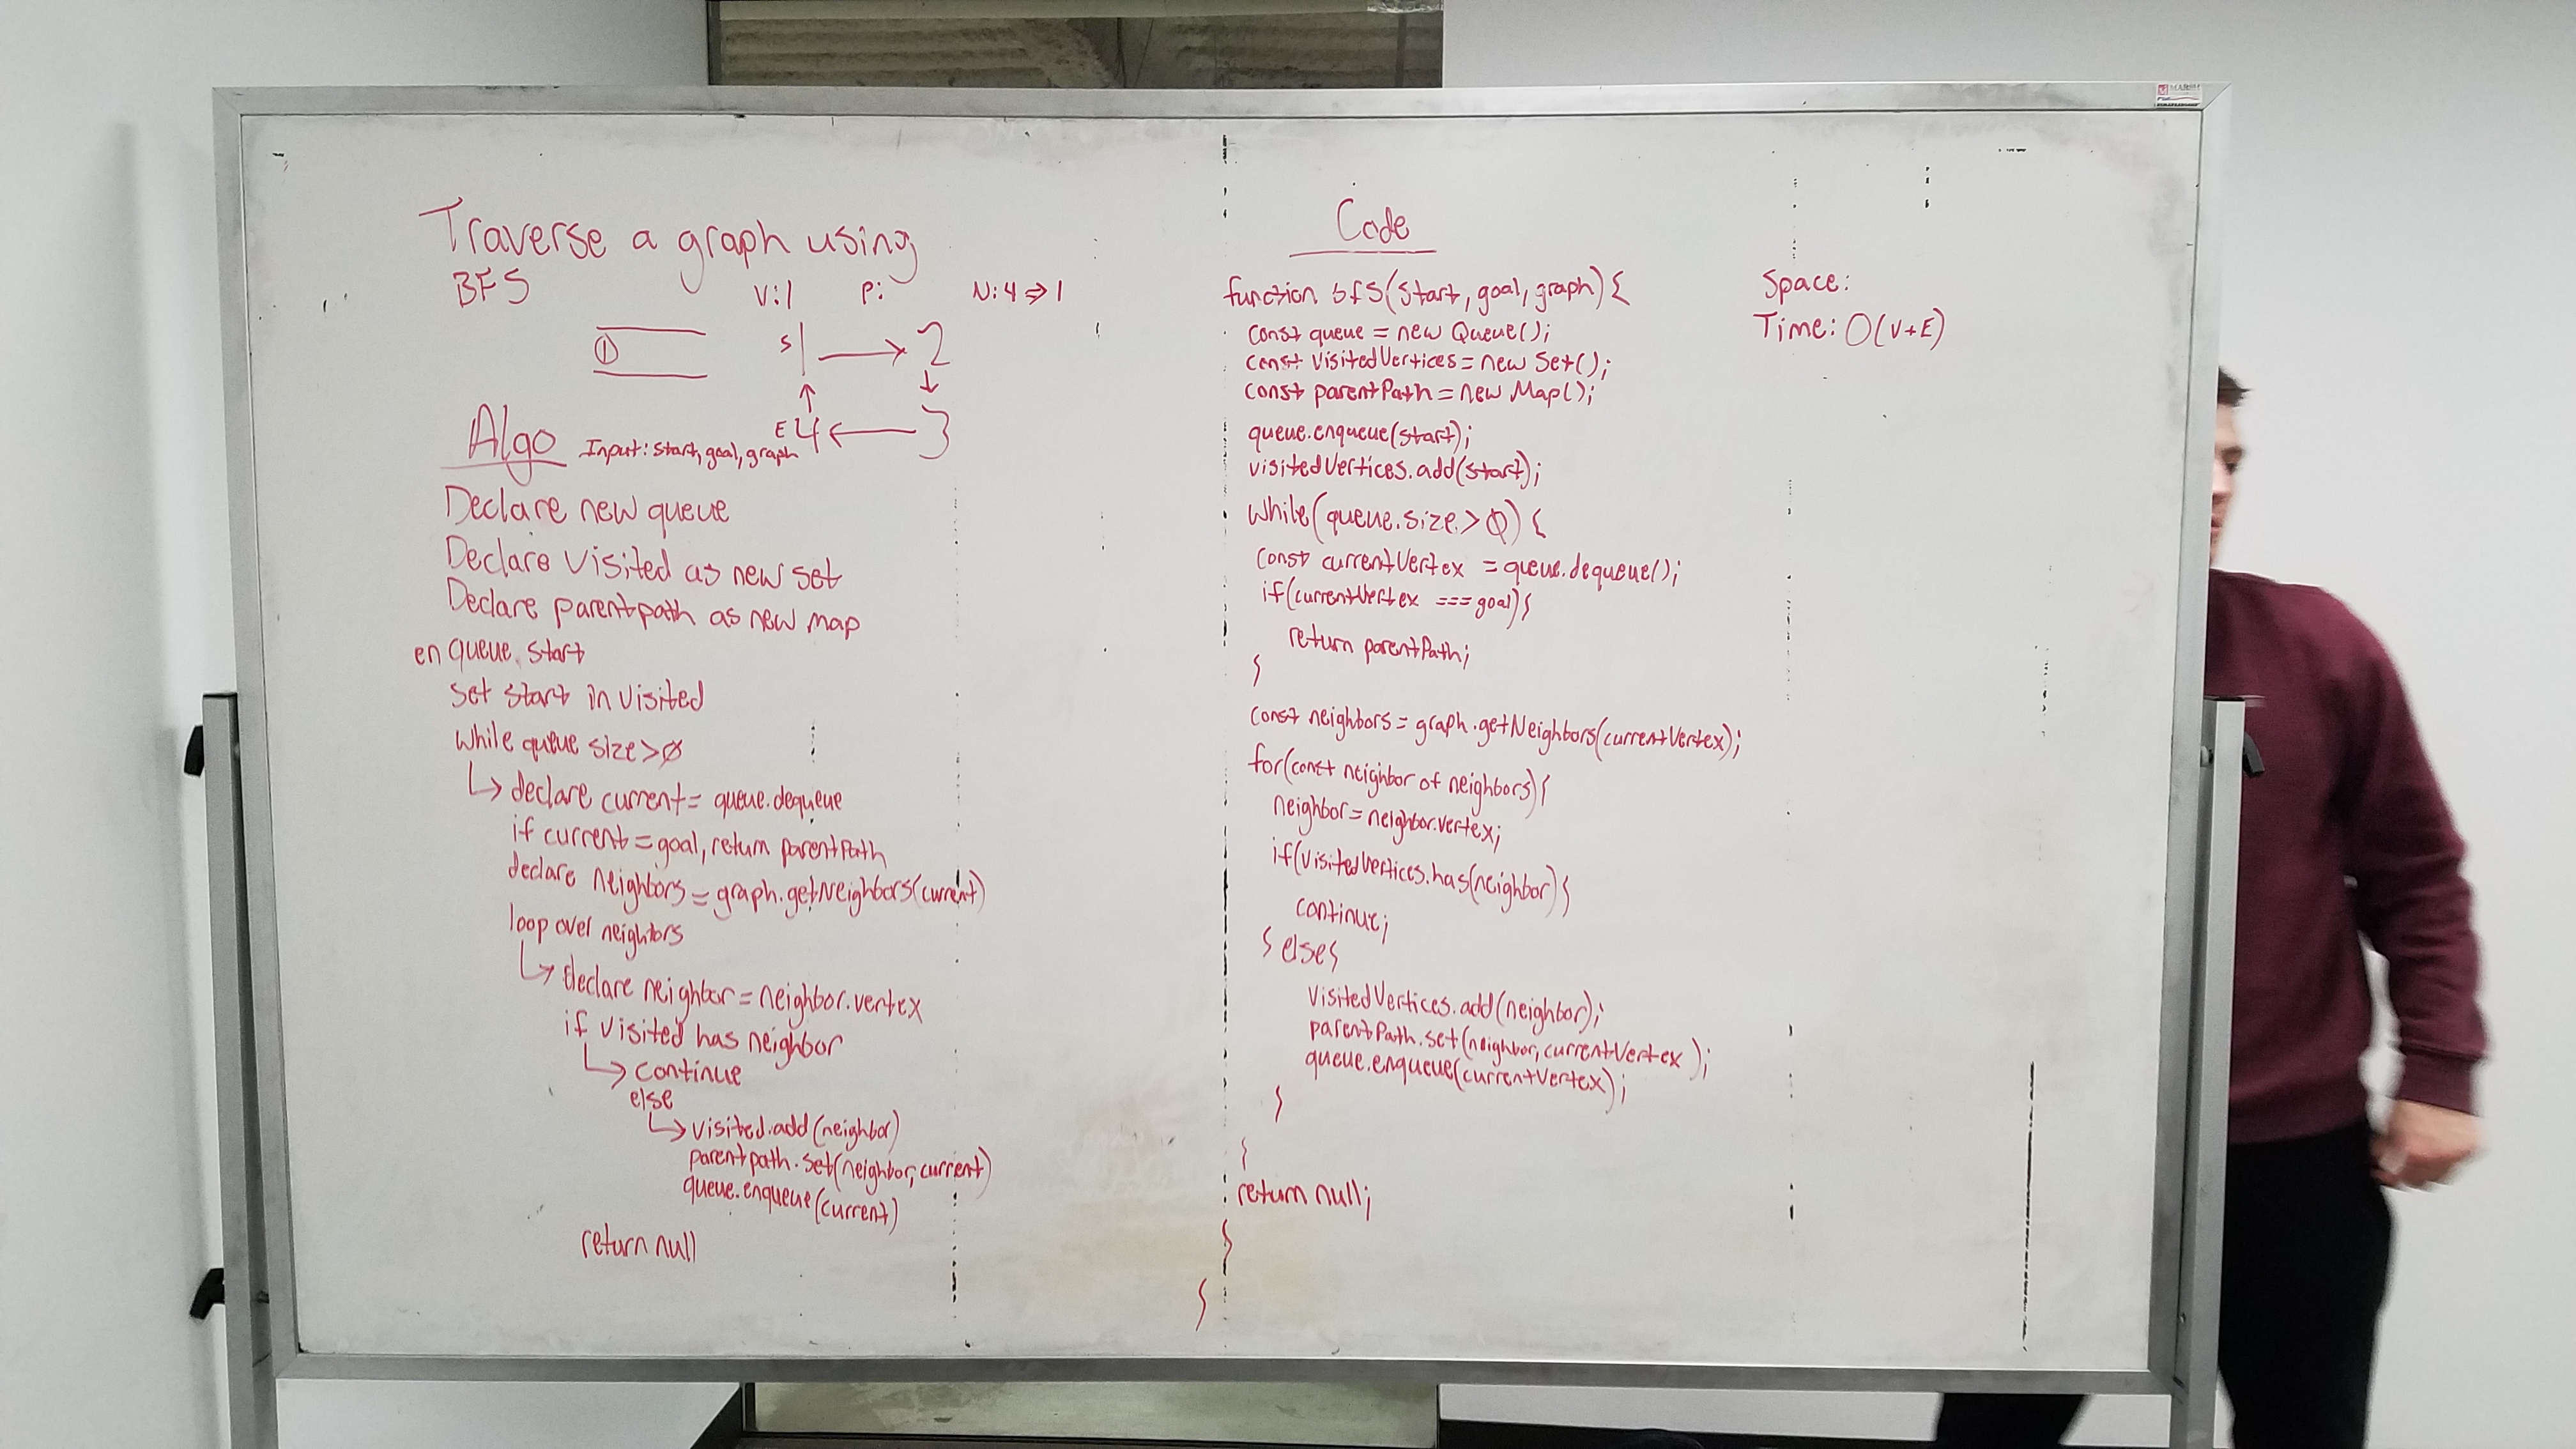 Traverse a graph using
BFS
V:1 P: N:4 ⇒ 1
① S1 → 2
↑ ↓
E4 ← 3
Algo Input: start, goal, graph
Declare new queue
Declare visited as new set
Declare parentpath as new map
enqueue start
set start in visited
while queue size > 0
↳ declare current = queue.dequeue
if current = goal, return parentPath
declare neighbors = graph.getNeighbors(current)
loop over neighbors
↳ declare neighbor = neighbor.vertex
if visited has neighbor
↳ continue
else
↳ visited.add(neighbor)
parentpath.set(neighbor, current)
queue.enqueue(current)
return null
Code
function bfs(start, goal, graph) {
const queue = new Queue();
const visitedVertices = new Set();
const parentPath = new Map();
queue.enqueue(start);
visitedVertices.add(start);
while(queue.size > 0) {
const currentVertex = queue.dequeue();
if(currentVertex === goal){
return parentPath;
}
const neighbors = graph.getNeighbors(currentVertex);
for(const neighbor of neighbors){
neighbor = neighbor.vertex;
if(visitedVertices.has(neighbor){
continue;
} else {
visitedVertices.add(neighbor);
parentPath.set(neighbor, currentVertex);
queue.enqueue(currentVertex);
}
}
return null;
}
}
Space:
Time: O(V+E)